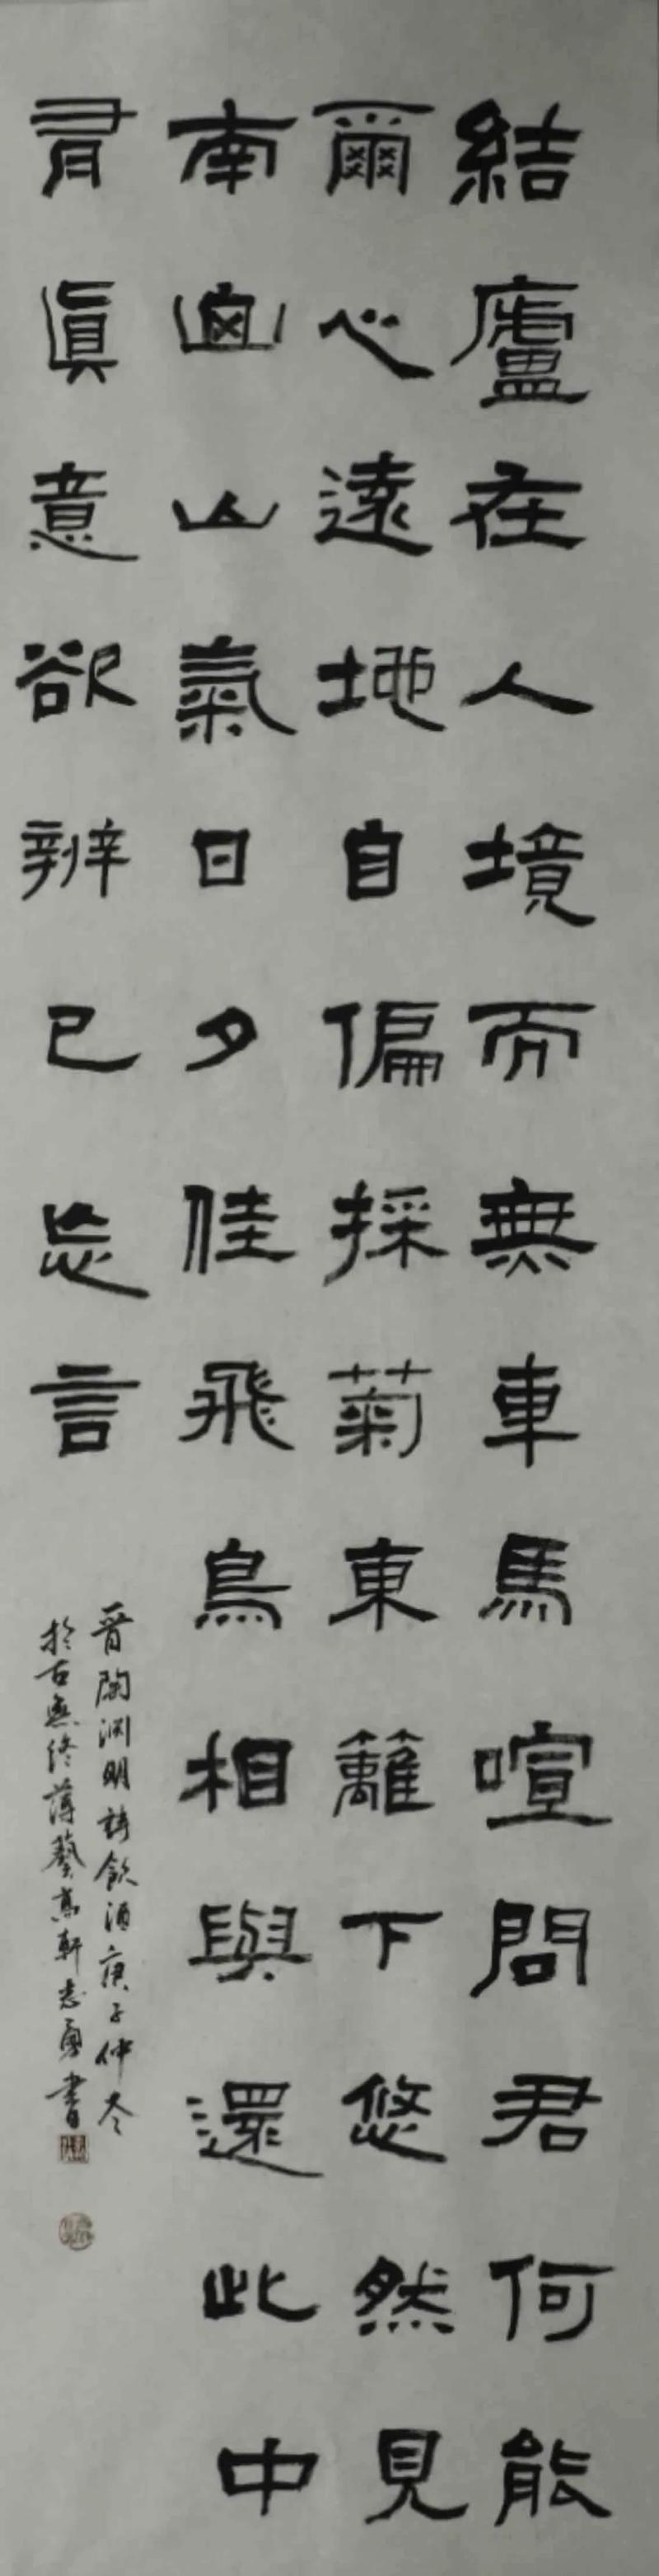 結廬在人境而無車馬喧問君何能
爾心遠地自偏採菊東籬下悠然見
南山山氣日夕佳飛鳥相與還此中
有眞意欲辨已忘言
晉陶淵明詩飲酒庚子仲冬
於古無終薄藝軒志勇書